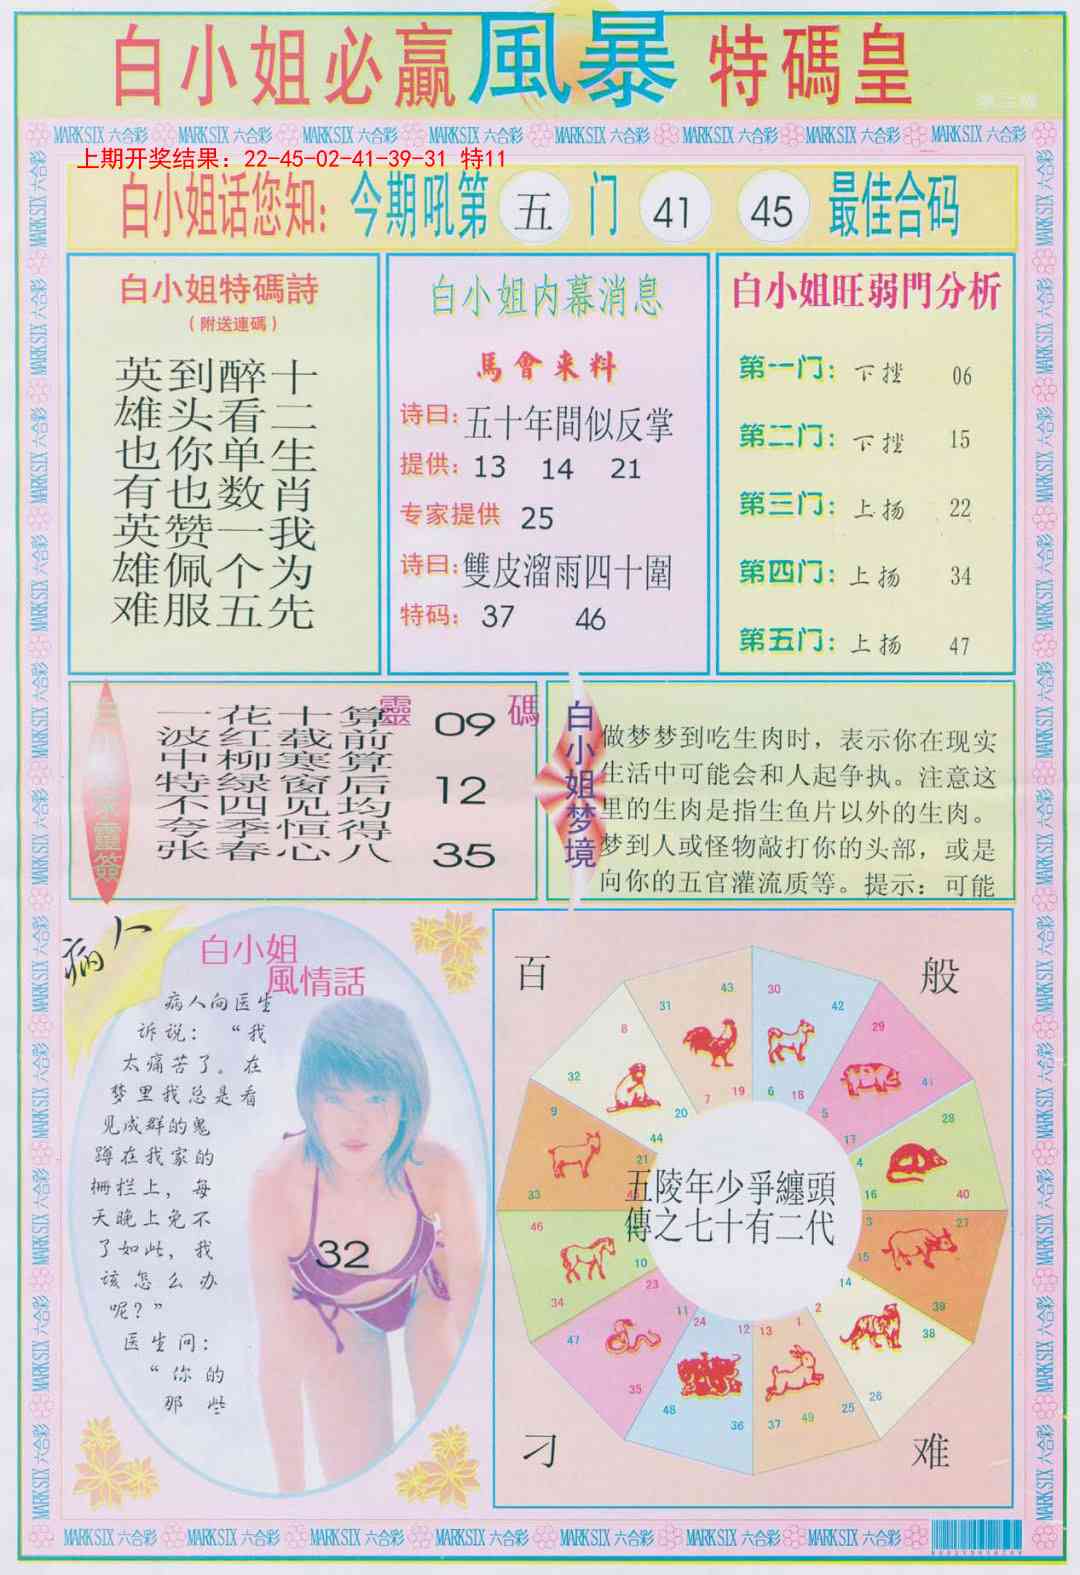 白小姐必赢風暴 特碼皇
第三版
MARK SIX 六合彩 MARK SIX 六合彩 MARK SIX 六合彩 MARK SIX 六合彩 MARK SIX 六合彩 MARK SIX 六合彩 MARK SIX 六合彩 MARK SIX 六合彩
上期开奖结果：22-45-02-41-39-31 特11
白小姐话您知：今期吼第 五 门 41 45 最佳合码
白小姐特碼詩
（附送連碼）
十二生肖我为先
醉看单数一个五
到头你也赞佩服
英雄也有英雄难
白小姐内幕消息
馬會来料
诗曰：五十年間似反掌
提供：13 14 21
专家提供 25
诗曰：雙皮溜雨四十圍
特码：37 46
白小姐旺弱門分析
第一门：下挫 06
第二门：下挫 15
第三门：上扬 22
第四门：上扬 34
第五门：上扬 47
靈碼
算前算后均得八
十载寒窗见恒心
花红柳绿四季春
一波中特不夸张
09
12
35
白小姐梦境
做梦梦到吃生肉时，表示你在现实
生活中可能会和人起争执。注意这
里的生肉是指生鱼片以外的生肉。
梦到人或怪物敲打你的头部，或是
向你的五官灌流质等。提示：可能
病人
白小姐
風情話
病人向医生
诉说：“我
太痛苦了。在
梦里我总是看
见成群的鬼
蹲在我家的
栅栏上，每
天晚上免不
了如此，我
该怎么办
呢？”
医生问：
“你的
那些
32
百般
刁难
五陵年少爭纏頭
傳之七十有二代
43 31 19 7
30 42 6 18
29 41 5 17
28 4 16 40
27 3 15 39
14 2 38 26
1 13 25 37 49
24 12 48 36
23 11 47 35
46 10 34
9 21 33 45
8 32 20 44
MARK SIX 六合彩 MARK SIX 六合彩 MARK SIX 六合彩 MARK SIX 六合彩 MARK SIX 六合彩 MARK SIX 六合彩 MARK SIX 六合彩